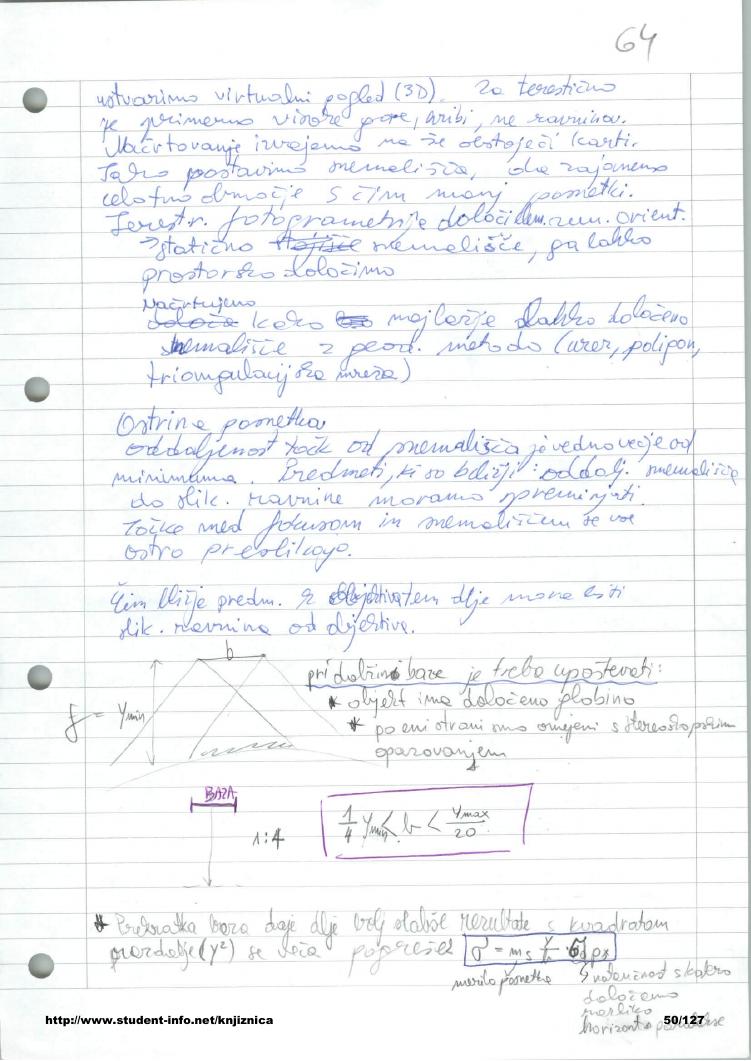 64
ustvarimo virtualni pogled (3D). Za terestično
je primerno visoke gore, hribi, ne ravninov.
Načrtovanje izvajamo na že obstoječi karti.
Tako postavimo snemališča, da zajamemo
celotno območje s čim manj posnetki.
Terestr. fotogrametrije določil zun. orient.
→ statično snemališče, ga lahko
prostorsko določimo
načrtujemo
kako najlažje lahko določeno
snemališče z geod. metodo (urez, poligon,
triangulacijska mreža)
Ostrina posnetka
oddaljenost točk od snemališča je vedno večje od
minimuma. Predmeti, ki so bližji: oddalj. snemališča
do slik. ravnine moramo spreminjati.
Točke med fokusom in snemališčem se vse
ostro preslikajo.
Čim bližje predm. z objektivatem dlje mora biti
slik. ravnina od objektiva.
b
f = Ymin
pri dolžini baze je treba upoštevati:
* objekt ima določeno globino
* po eni strani smo omejeni s stereoskopskim
opazovanjem
BAZA
1:4
1/4 Ymin < b < Ymax/20
* Prekratka baza daje dlje bolj slabše rezultate s kvadratom
(y²) se veča pogrešek σ = ms Y/b · σpx
merilo posnetka
natančnost s katero
določamo
razliko
horizont. paralakse
http://www.student-info.net/knjiznica
50/127